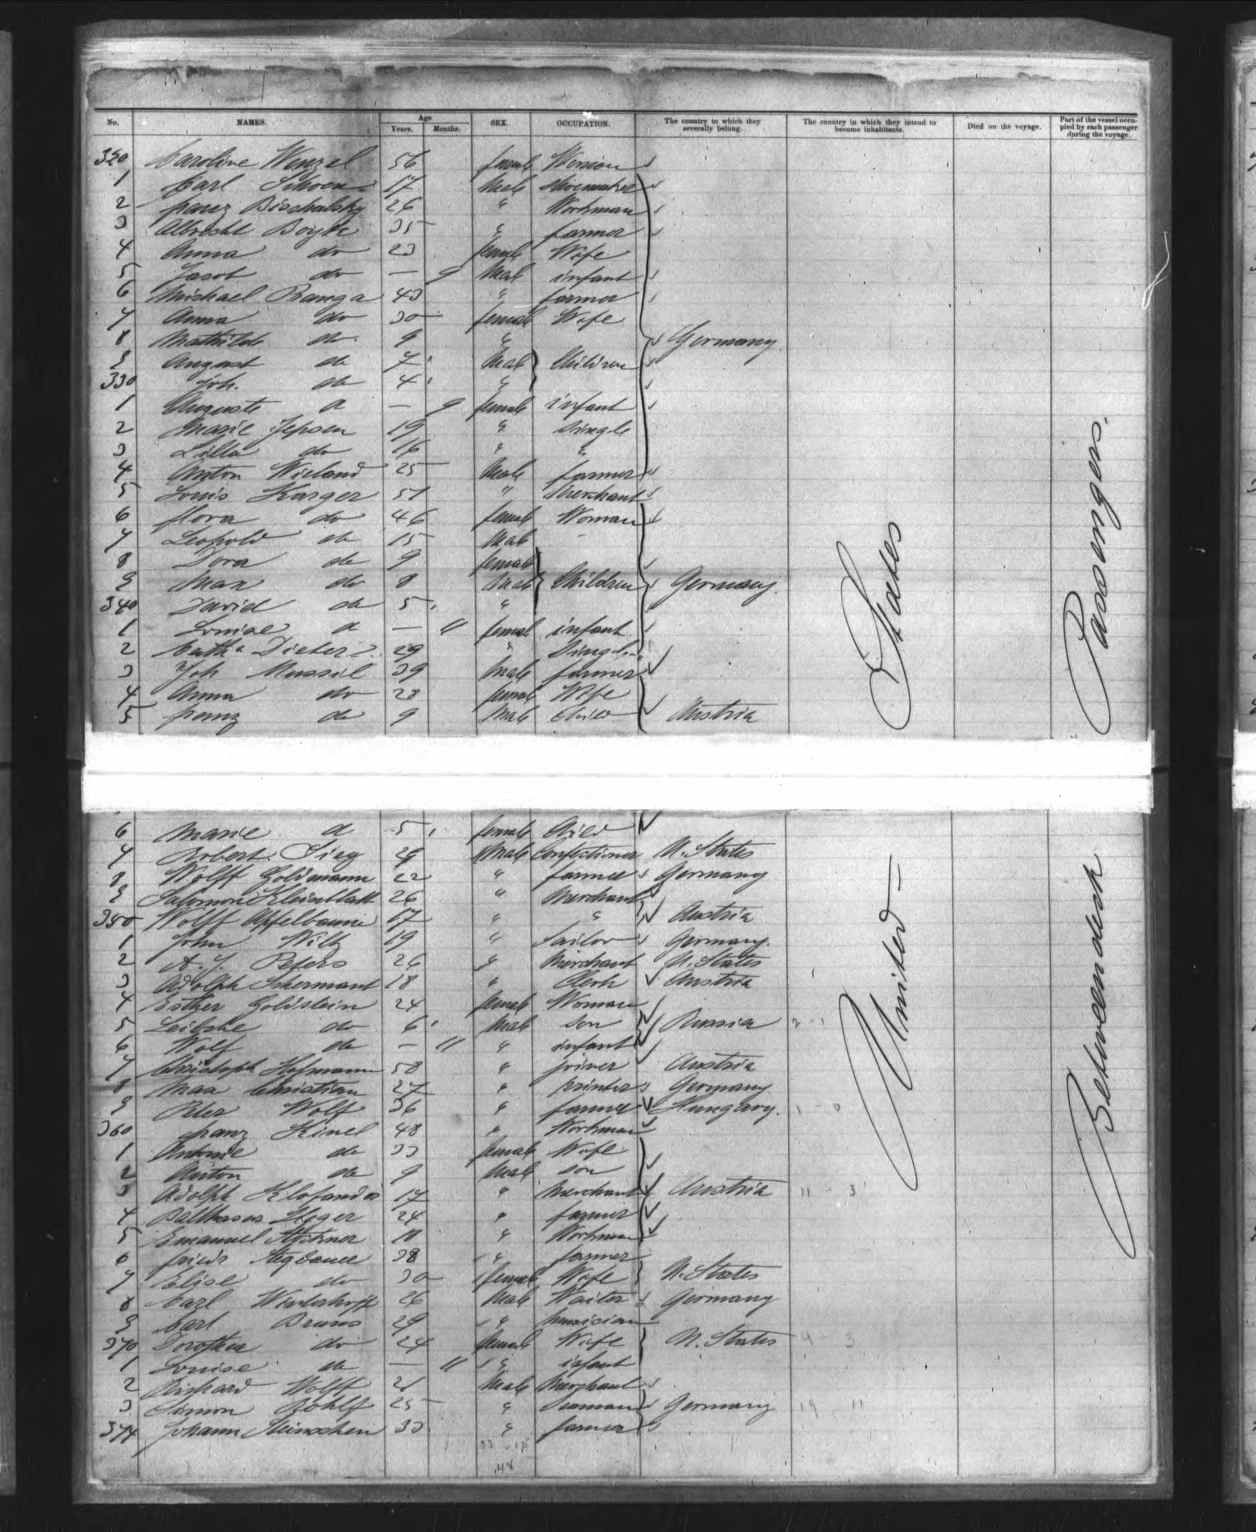 No. NAMES. Age Years. Months. SEX. OCCUPATION. The country to which they severally belong. The country in which they intend to become inhabitants. Died on the voyage. Part of the vessel occupied by each passenger during the voyage.
320 Caroline Wenzel 56 female Woman
1 Carl 17 Male Shoemaker
2 Franz 26 " Workman
3 Albrecht 35 " farmer
4 Anna do 23 female Wife
5 Jacob do — 9 Male infant
6 Michael Ranga 43 " farmer
7 Anna do 30 female Wife
8 Mathilde do 9 " Germany
9 August do 7 Male Children
330 Joh. do 4 "
1 Auguste do — 9 female infant
2 Marie Jepsen 19 " Single
3 do 16 " "
4 Anton Wieland 25 Male farmer
5 Louis Karger 51 " Merchant
6 flora do 46 female Woman
7 Leopold do 15 Male -
8 Dora do 9 female
9 Max do 8 Male Children Germany
340 David do 5 "
1 Louise do — 11 female infant
2 29 " Single
3 Joh Mussil 39 Male farmer
4 Anna do 28 female Wife
5 franz do 9 Male Child Austria
6 Marie do 5 female Child
7 Robert 29 Male Confectioner U. States
8 Wolff Goldmann 22 " farmer Germany
9 Salomon Kleinblatt 26 " Merchant
350 Wolff Apfelbaum 17 " " Austria
1 John Wilk 19 " Sailor Germany
2 A. J. Peters 26 " Merchant U. States
3 Adolph 18 " Clerk Austria
4 Esther Goldstein 24 female Woman
5 Leibske do 6 Male Son Russia
6 Wolf do — 11 " infant
7 Christoph Hofmann 58 " joiner Austria
8 Max Christian 27 " printer Germany
9 Peter Wolf 36 " farmer Hungary.
360 franz Kinel 48 " Workman
1 Antonie do 33 female Wife
2 Anton do 9 Male son
3 Adolph 17 " Merchant Austria 11 - 3
4 Balthasar 24 " farmer
5 Emanuel " Workman
6 38 " farmer
7 Elise do 30 female Wife U. States
8 Carl 26 Male Waiter Germany
9 Carl Bruns 29 " musician
370 Dorothea do 24 female Wife U. States
1 Louise do — 11 " infant
2 Richard Wolff Male Merchant
3 Simon Rohlf 25 " Seaman Germany 19 11
374 Johann 33 " farmer
United States
Betweendeck Passengers.